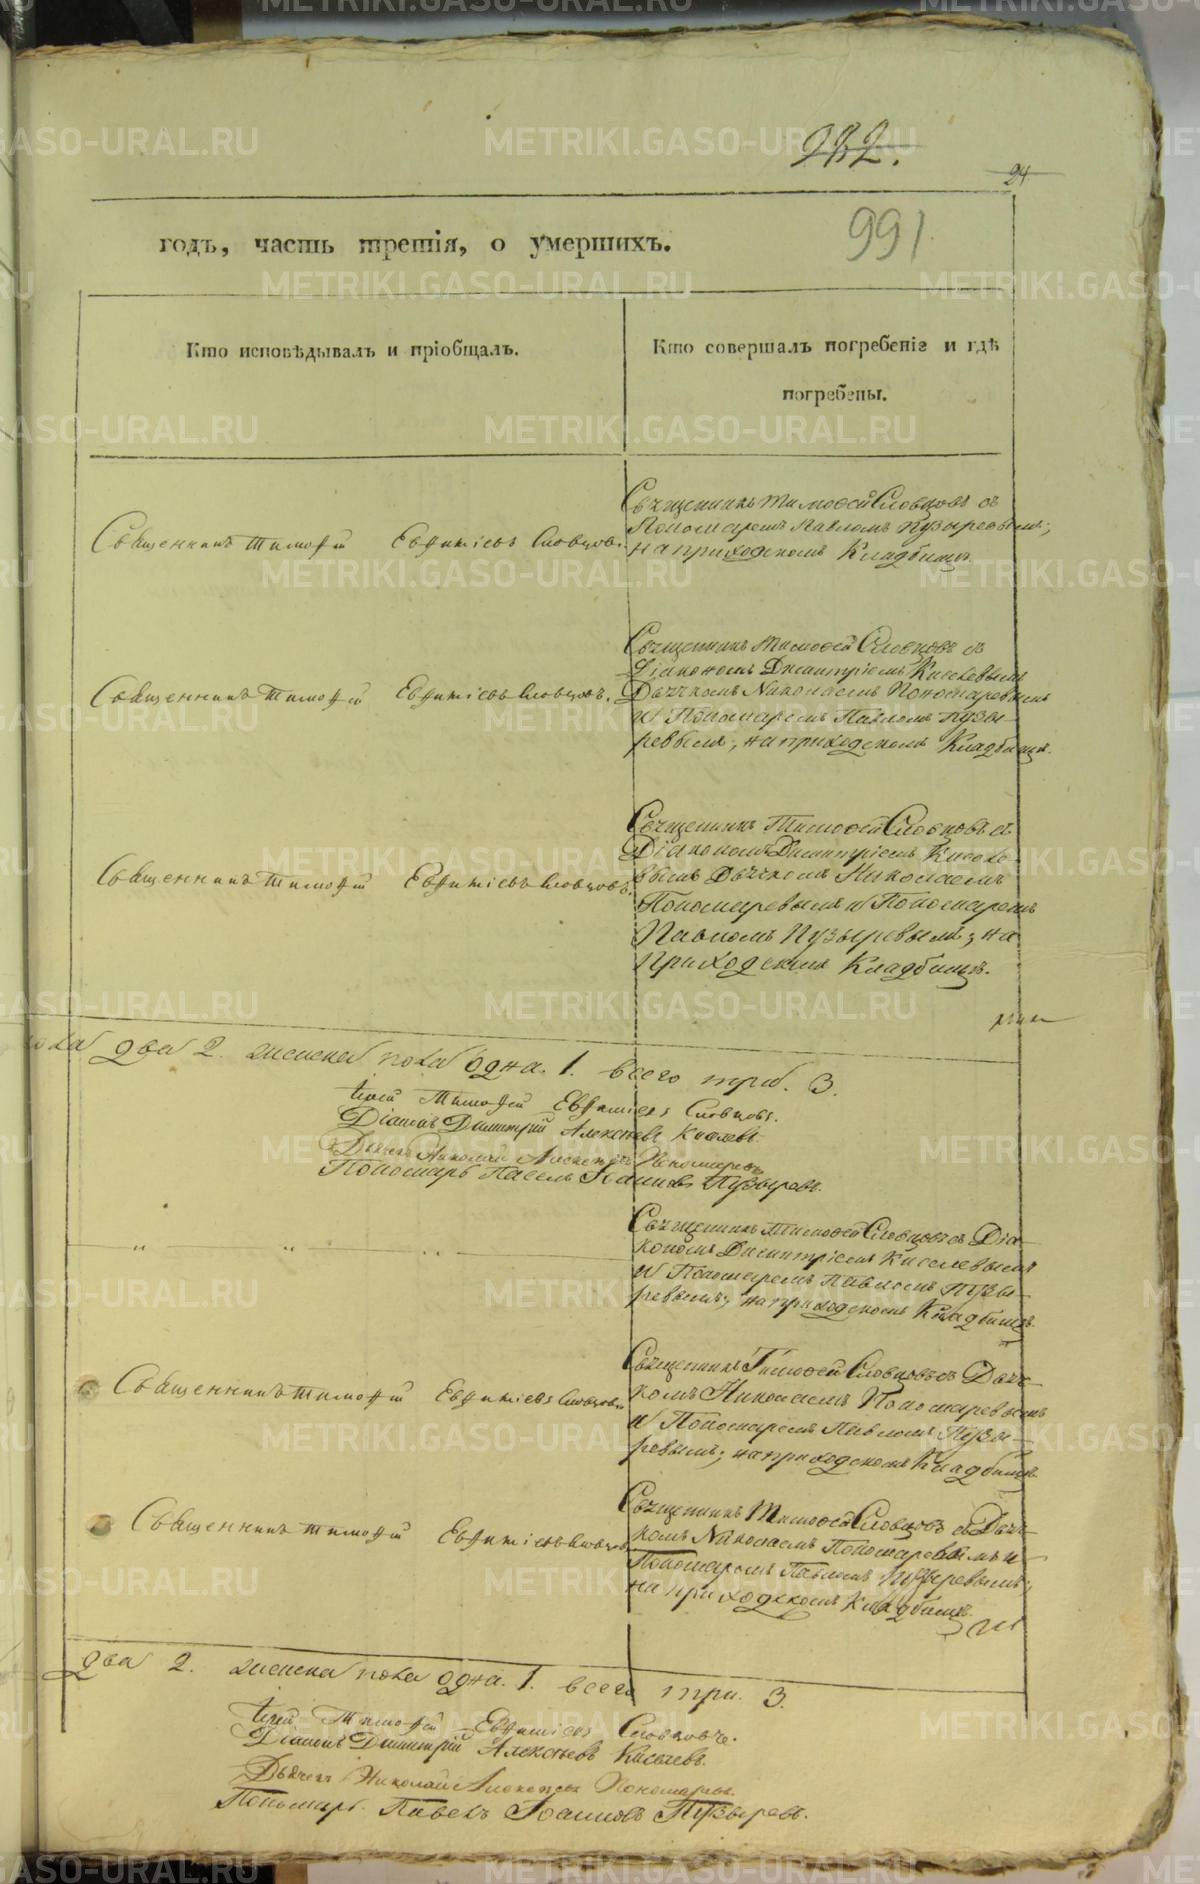 282.
24
991
годъ, часть третія, о умершихъ.
Кто исповѣдывалъ и пріобщалъ.
Кто совершалъ погребеніе и гдѣ
погребены.
Священникъ Тимофей Евфиміевъ Словцовъ.
Священникъ Тимофей Словцовъ съ
Пономаремъ Павломъ Пузыревымъ;
на приходскомъ Кладбищѣ.
Священникъ Тимофей Евфиміевъ Словцовъ.
Священникъ Тимофей Словцовъ съ
Діакономъ Димитріемъ Киселевымъ
Дьячкомъ Николаемъ Пономаревымъ
и Пономаремъ Павломъ Пузы-
ревымъ, на приходскомъ Кладбищѣ.
Священникъ Тимофей Евфиміевъ Словцовъ.
Священникъ Тимофей Словцовъ съ
Діакономъ Димитріемъ Кисле-
вымъ Дьячкомъ Николаемъ
Пономаревымъ и Пономаремъ
Павломъ Пузыревымъ; на
Приходскомъ Кладбищѣ.
пола два 2. женска пола одна. 1. всего три. 3.
Іерей Тимофей Евфиміевъ Словцовъ.
Діаконъ Димитрій Алексѣевъ Киселевъ.
Дьячекъ Николай Алексѣевъ Пономаревъ
Пономарь Павелъ Іоанновъ Пузыревъ.
Священникъ Тимофей Словцовъ съ Діа-
кономъ Димитріемъ Киселевымъ
и Пономаремъ Павломъ Пузы-
ревымъ; на приходскомъ Кладбищѣ.
Священникъ Тимофей Евфиміевъ Словцовъ
Священникъ Тимофей Словцовъ съ Дьяч-
комъ Николаемъ Пономаревымъ
и Пономаремъ Павломъ Пузы-
ревымъ; на приходскомъ Кладбищѣ
Священникъ Тимофей Евфиміевъ Словцовъ
Священникъ Тимофей Словцовъ съ Дьяч-
комъ Николаемъ Пономаревымъ и
Пономаремъ Павломъ Пузыревымъ;
на приходскомъ Кладбищѣ.
два 2. женска пола одна. 1. всего три. 3.
Іерей Тимофей Евфиміевъ Словцовъ.
Діаконъ Димитрій Алексѣевъ Киселевъ.
Дьячекъ Николай Алексѣевъ Пономаревъ.
Пономарь Павелъ Іоанновъ Пузыревъ.
METRIKI.GASO-URAL.RU